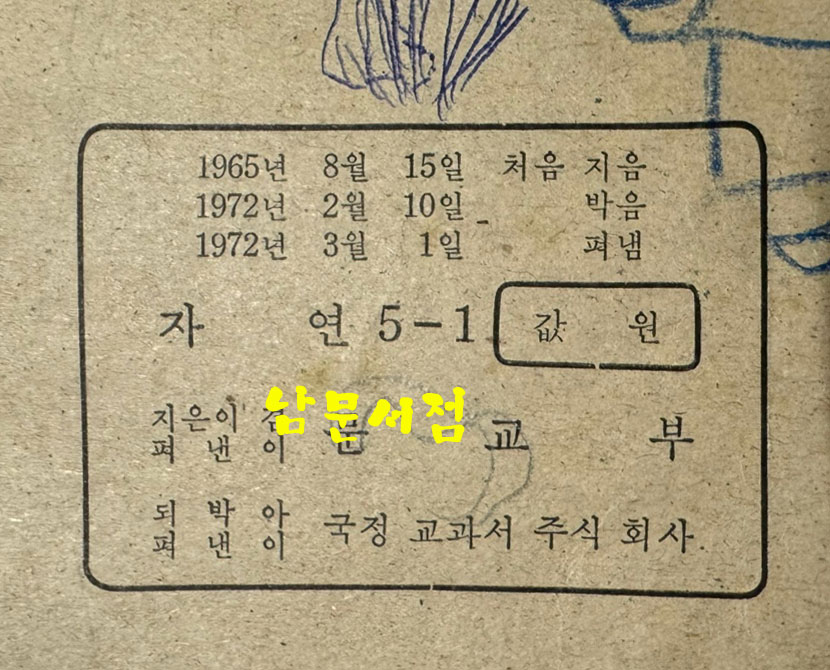 1965년 8월 15일 처음 지음
1972년 2월 10일 박음
1972년 3월 1일 펴냄
자 연 5-1 값 원
지은이 겸
펴 낸 이
문 교 부
남문서점
되 박 아
펴 낸 이
국정 교과서 주식 회사